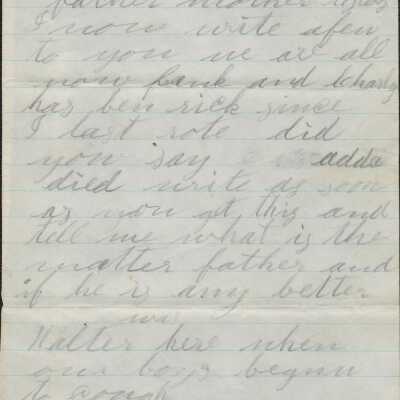 father mother
I now write a few
to you we ar all
now and Charly
has ben sick since
I last rote did
you say adda
died write as soon
as you get this and
tell me what is the
matter father and
if he is any better
Walter here when
our boys begun
to cough